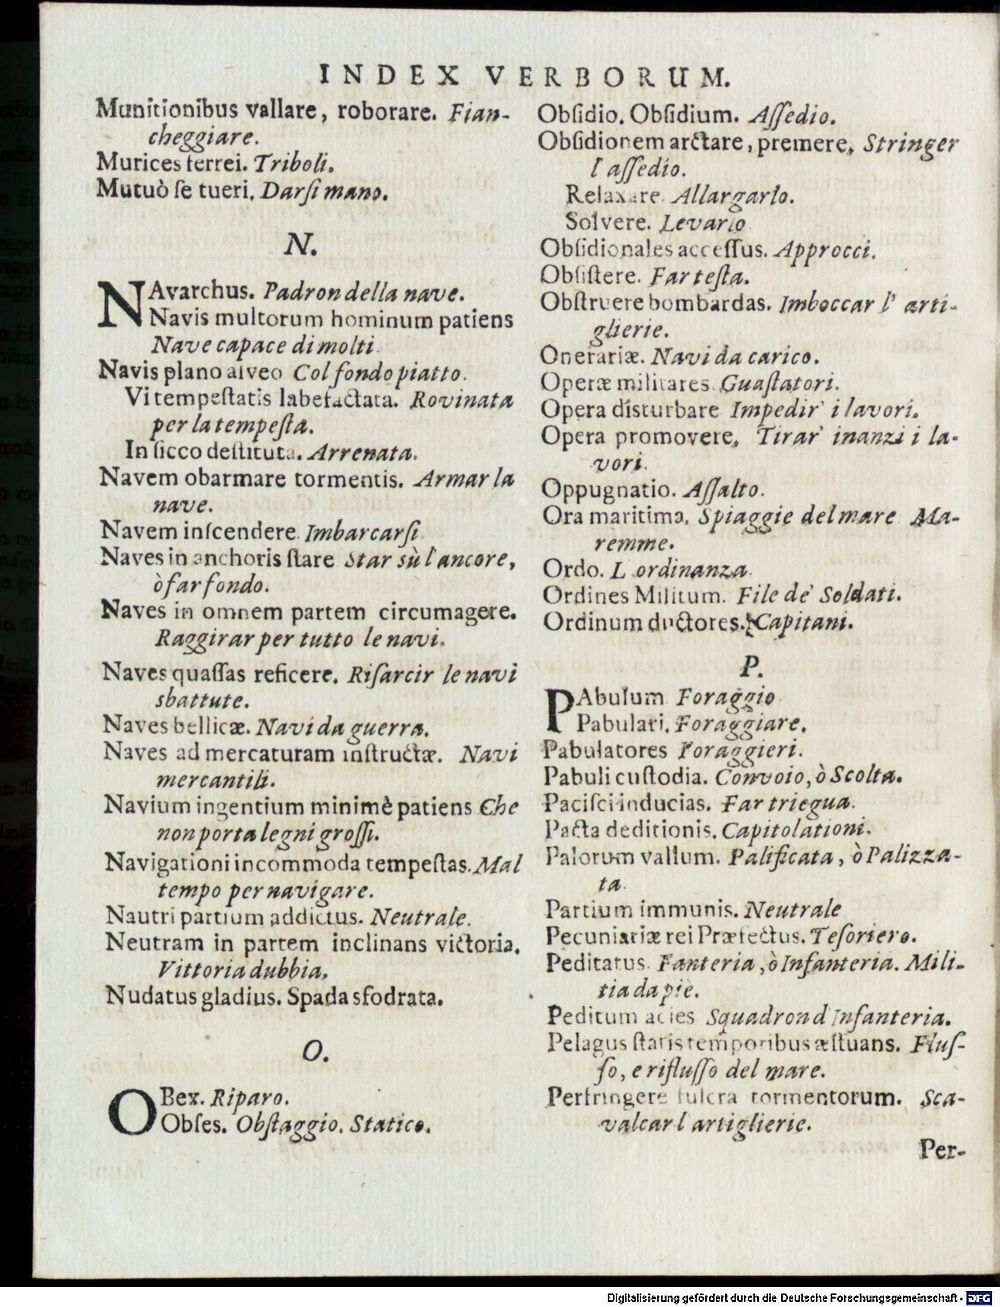 INDEX VERBORUM.
Munitionibus vallare, roborare. Fian-
cheggiare.
Murices terrei. Triboli.
Mutuò ſe tueri. Darſi mano.
N.
NAvarchus. Padron della nave.
Navis multorum hominum patiens
Nave capace di molti.
Navis plano alveo Col fondo piatto.
Vi tempeſtatis labefactata. Rovinata
per la tempeſta.
In ſicco deſtituta. Arrenata.
Navem obarmare tormentis. Armar la
nave.
Navem inſcendere Imbarcarſi
Naves in anchoris ſtare Star sù l'ancore,
ò far fondo.
Naves in omnem partem circumagere.
Raggirar per tutto le navi.
Naves quaſſas reficere. Riſarcir le navi
sbattute.
Naves bellicæ. Navi da guerra.
Naves ad mercaturam inſtructæ. Navi
mercantili.
Navium ingentium minimè patiens Che
non porta legni groſſi.
Navigationi incommoda tempeſtas. Mal
tempo per navigare.
Nautri partium addictus. Neutrale.
Neutram in partem inclinans victoria.
Vittoria dubbia.
Nudatus gladius. Spada sfodrata.
O.
OBex. Riparo.
Obſes. Obſtaggio. Statico.
Obſidio. Obſidium. Aſſedio.
Obſidionem arctare, premere. Stringer
l aſſedio.
Relaxare. Allargarlo.
Solvere. Levarlo
Obſidionales acceſſus. Approcci.
Obſiſtere. Far teſta.
Obſtruere bombardas. Imboccar l' arti-
glierie.
Onerariæ. Navi da carico.
Operæ militares Guaſtatori.
Opera diſturbare Impedir' i lavori.
Opera promovere. Tirar' inanzi i la-
vori.
Oppugnatio. Aſſalto.
Ora maritima. Spiaggie del mare Ma-
remme.
Ordo. L ordinanza.
Ordines Militum. File de' Soldati.
Ordinum ductores. Capitani.
P.
PAbulum Foraggio
Pabulari. Foraggiare.
Pabulatores Foraggieri.
Pabuli cuſtodia. Convoio, ò Scolta.
Paciſci inducias. Far triegua.
Pacta deditionis. Capitolationi.
Palorum vallum. Palificata, ò Palizza-
ta.
Partium immunis. Neutrale
Pecuniariæ rei Præfectus. Teſoriero.
Peditatus. Fanteria, ò Infanteria. Mili-
tia da pie.
Peditum acies Squadron d Infanteria.
Pelagus ſtatis temporibus æſtuans. Fluſ-
ſo, e rifluſſo del mare.
Perfringere fulcra tormentorum. Sca-
valcar l artiglierie.
Per-
Digitalisierung gefördert durch die Deutsche Forschungsgemeinschaft - DFG